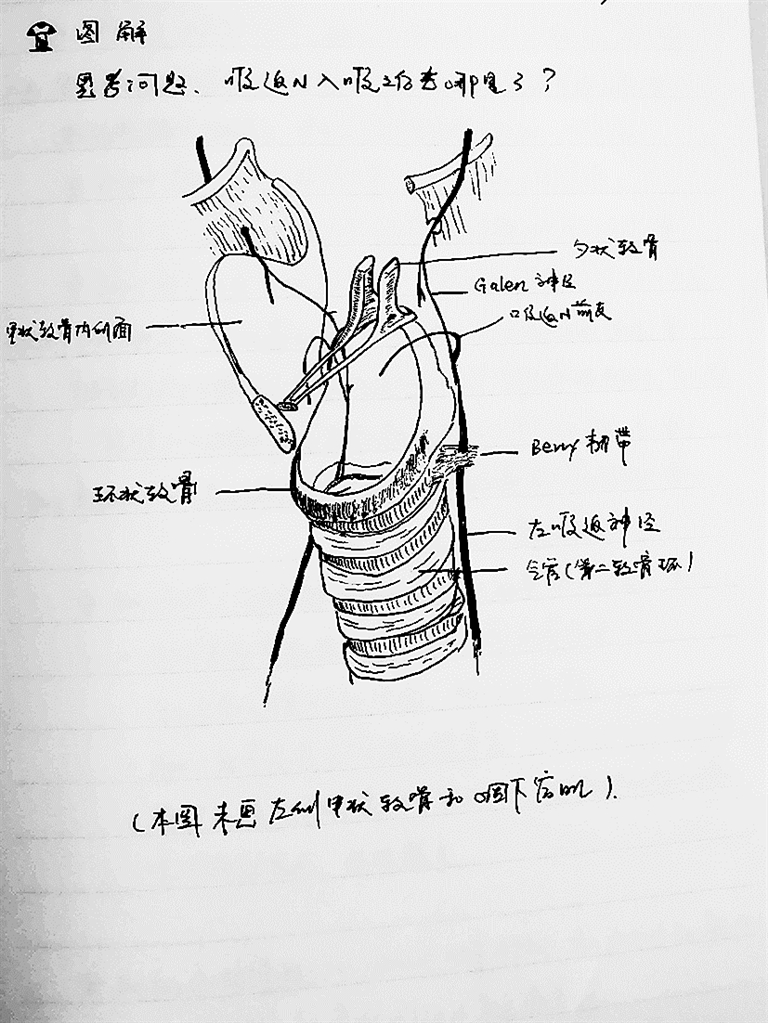 图解
思考问题、喉返N入喉之后去哪里了?
勺状软骨
Galen 神经
喉返N前支
甲状软骨内侧面
Berry 韧带
环状软骨
左喉返神经
气管(第二软骨环)
(本图未画左侧甲状软骨和咽下缩肌).